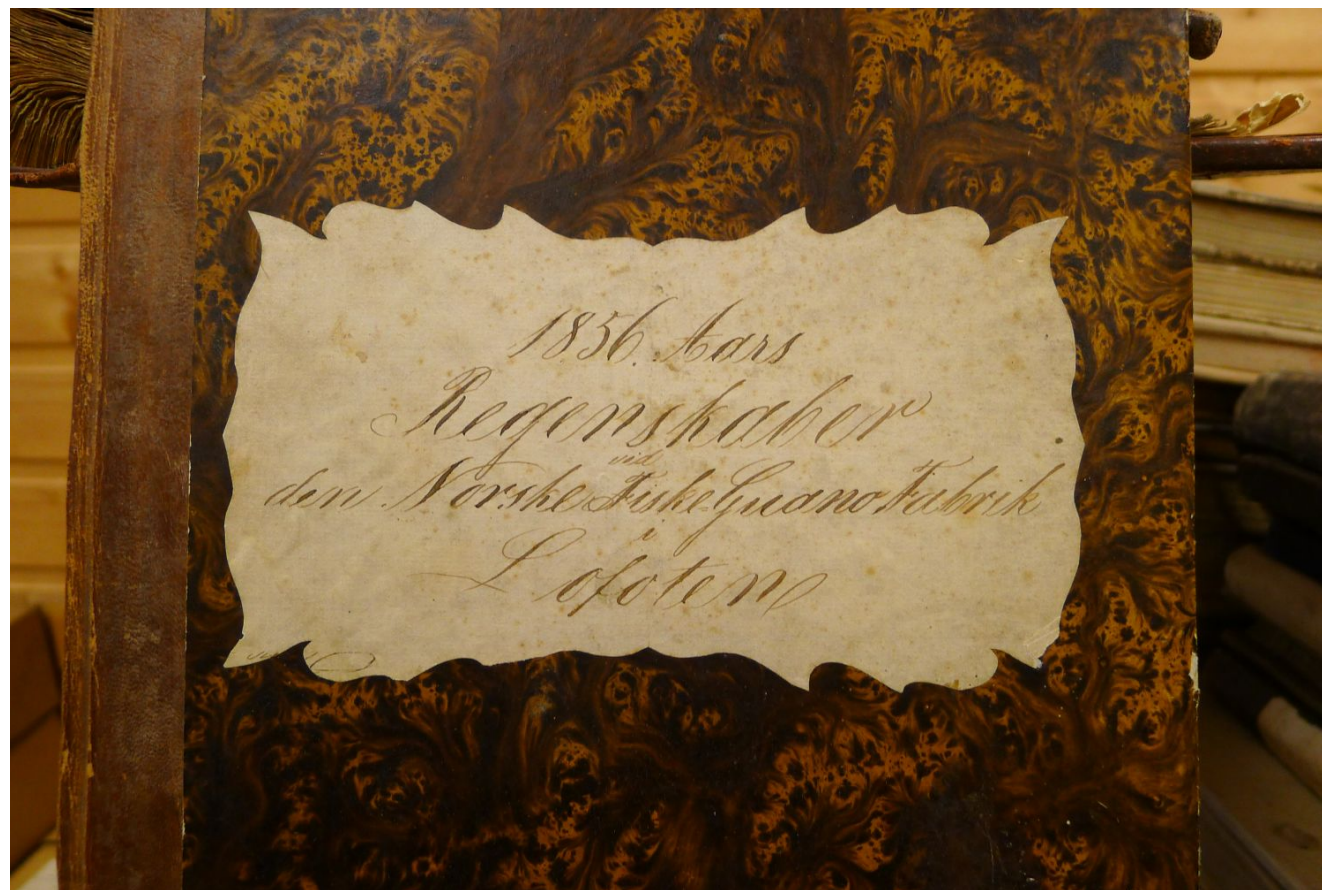 1856. Aars
Regenskaber
ved
den Norske Fiske Guano Fabrik
i
Lofoten